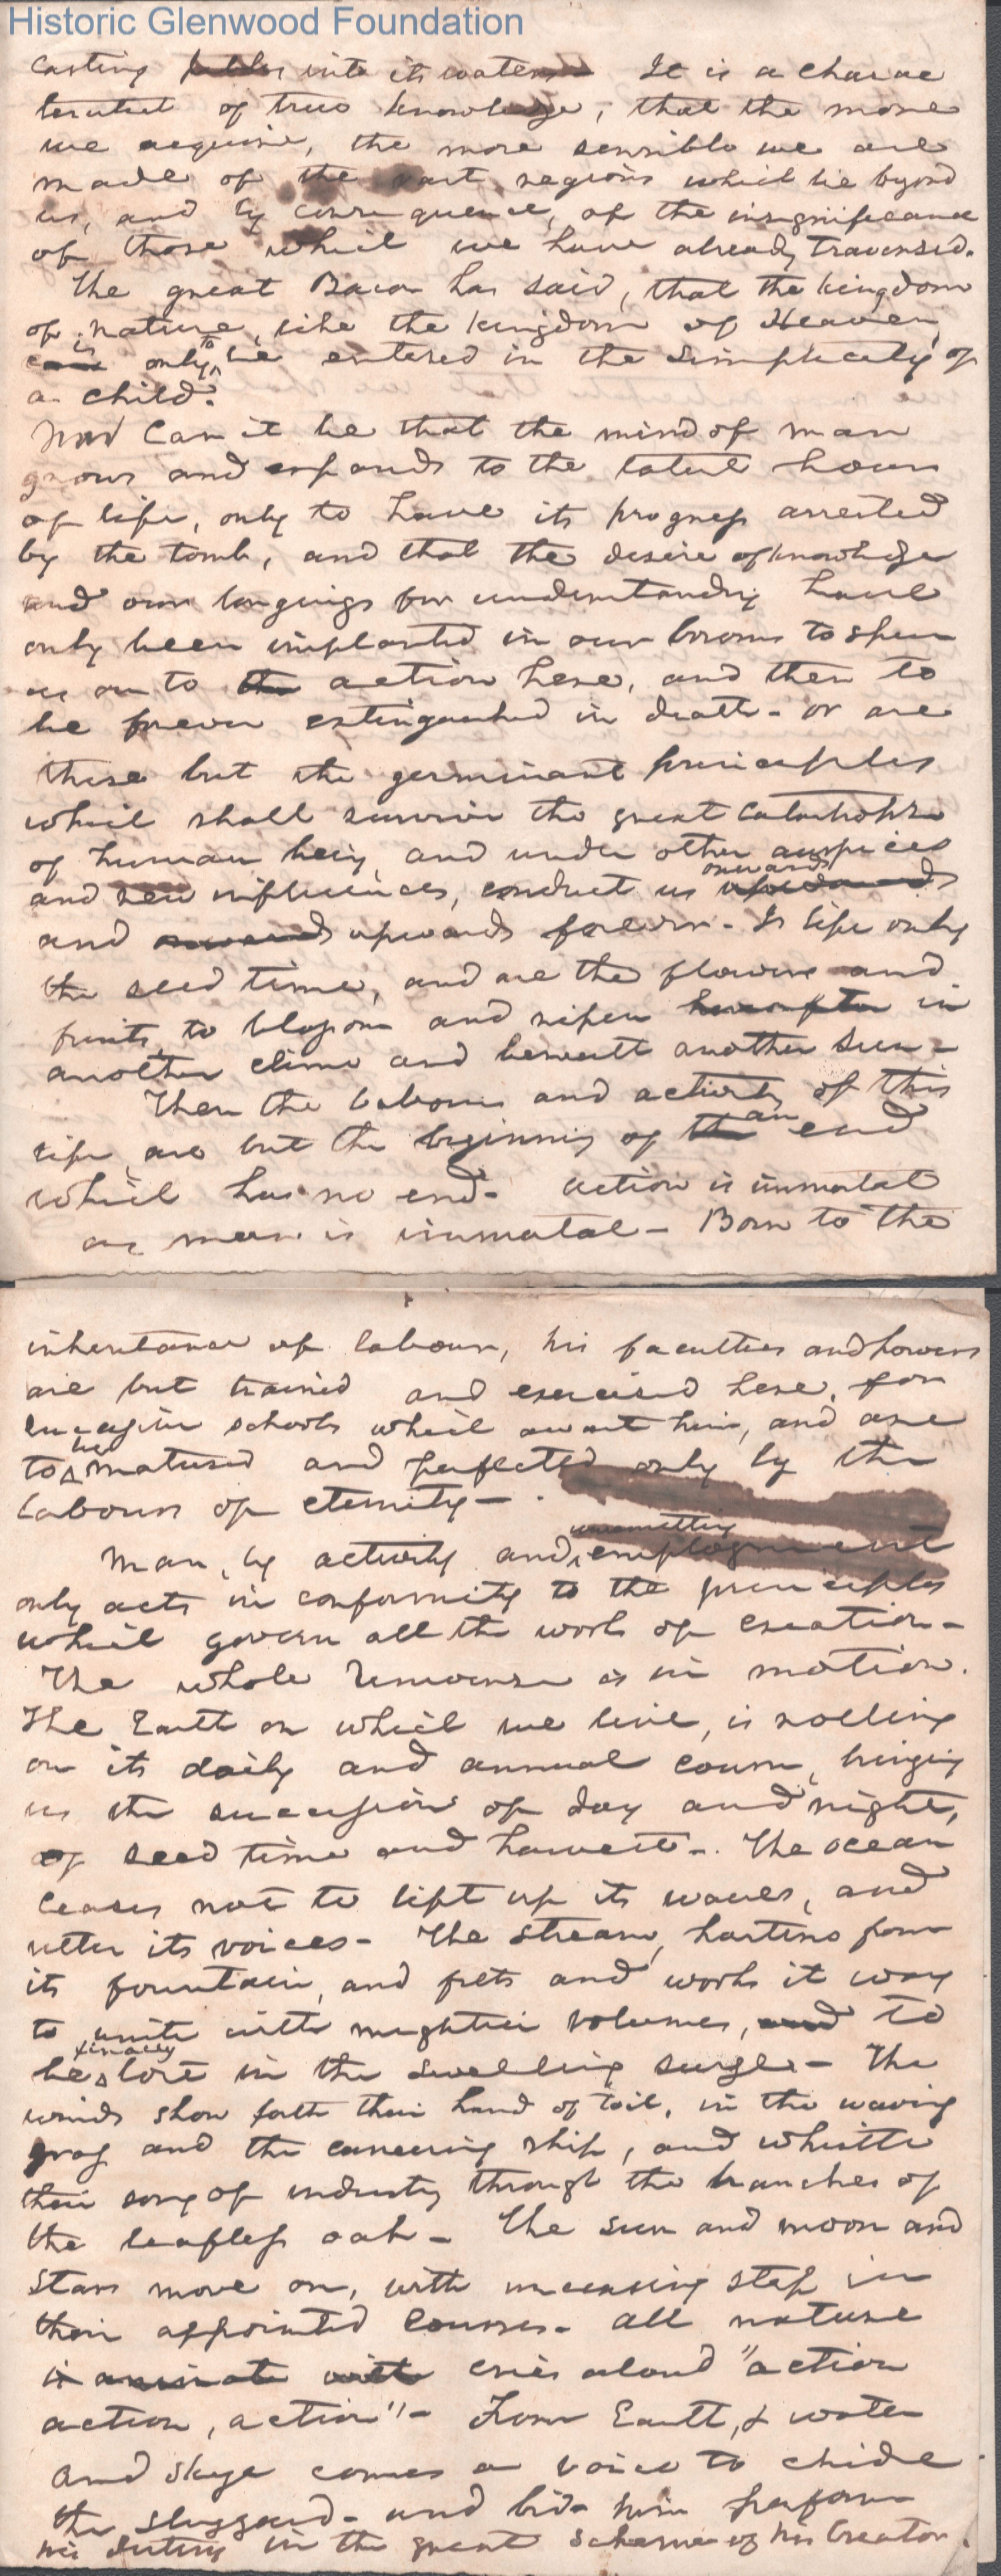 Historic Glenwood Foundation
casting pebbles into its waters. It is a charac
teristic of true knowledge, that the more
we acquire, the more sensible we are
made of the vast regions which lie beyond
us, and by consequence, of the insignificance
of those which we have already traversed.
The great Bacon has said, that the kingdom
of nature, like the kingdom of Heaven,
can is only to be entered in the simplicity of
a child.
Now can it be that the mind of man
grows and expands to the latest hours
of life, only to have its progress arrested
by the tomb, and that the desire of knowledge
and our longings for understanding have
only been implanted in our bosoms to spur
us on to the action here, and then to
be forever extinguished in death - or are
these but the germinant principles
which shall survive the great catastrophe
of human being, and under other auspices
and new influences, conduct us upwards onwards
and onwards upwards forever - Is life only
the seed time, and are the flowers and
fruits, to blossom and ripen hereafter in
another clime and beneath another sun -
Then the labours and activity of this
life are but the beginning of the an end
which has no end - action is immortal
as man is immortal - Born to the
inheritance of labour, his faculties and powers
are but trained and exercised here, for
schools which await him, and are
to be matured and perfected only by the
labours of eternity -
Man, by activity and unremitting employment
only acts in conformity to the principles
which govern all the works of creation -
The whole Universe is in motion.
The Earth on which we live, is rolling
on its daily and annual course, bringing
us the succession of day and night,
of seed time and harvest -. The ocean
ceases not to lift up its waves, and
utter its voices - The stream, hastens from
its fountain, and frets and works it way
to unite with mightier volumes, and to
be finally lost in the swelling surge - The
winds show forth their hand of toil, in the waving
grass and the careering ship, and whistle
their song of industry through the branches of
the leafless oak - The sun and moon and
stars move on, with unceasing step in
their appointed courses - all nature
is animate with cries aloud "action
action, action" - From Earth, & water
and skye comes a voice to chide
the sluggard - and bids him perform
his duties in the great scheme of his Creator.